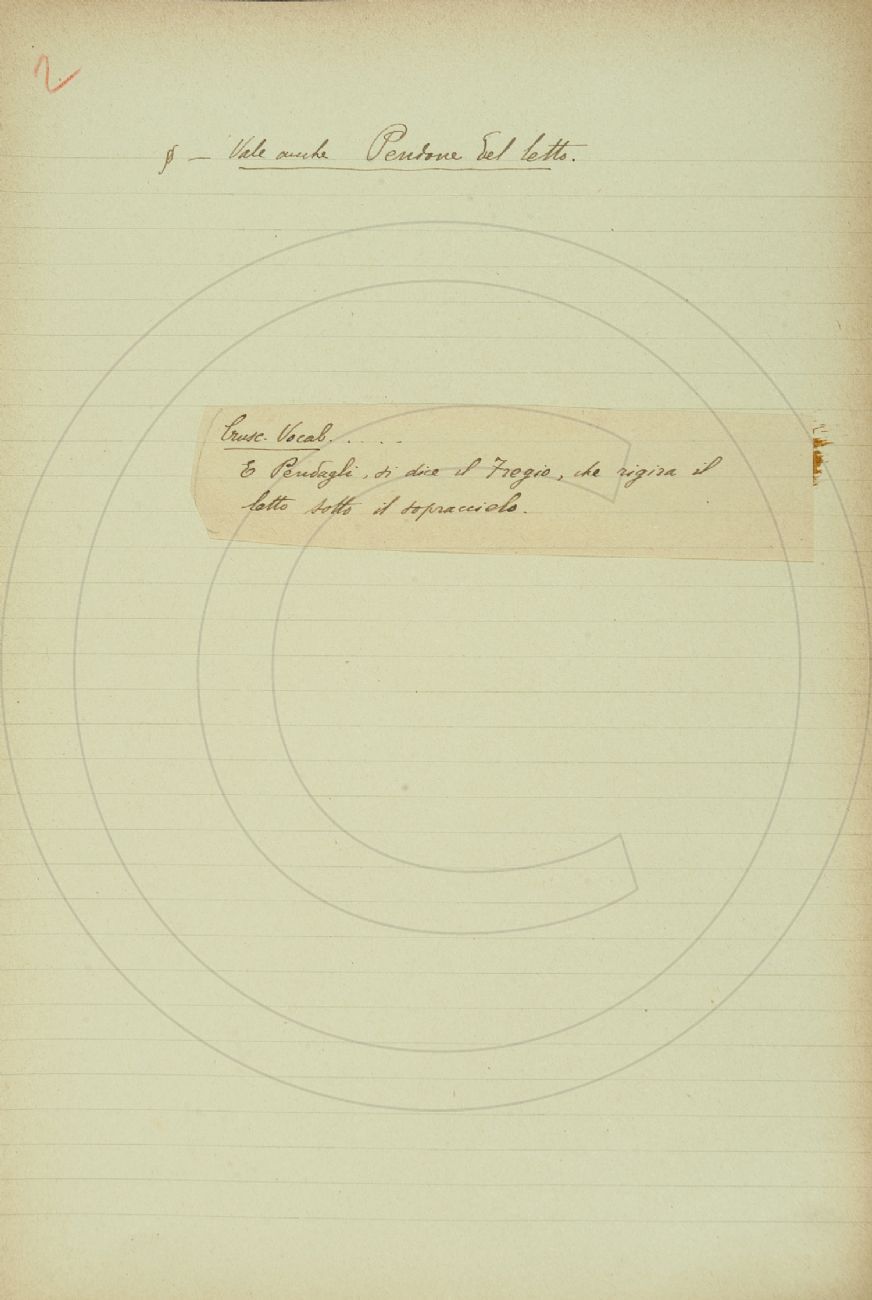 2
§ — Vale anche Pendone del letto.
Crusc. Vocab. . . . .
E Pendagli, si dice il Fregio, che rigira il
letto sotto il sopraccielo.